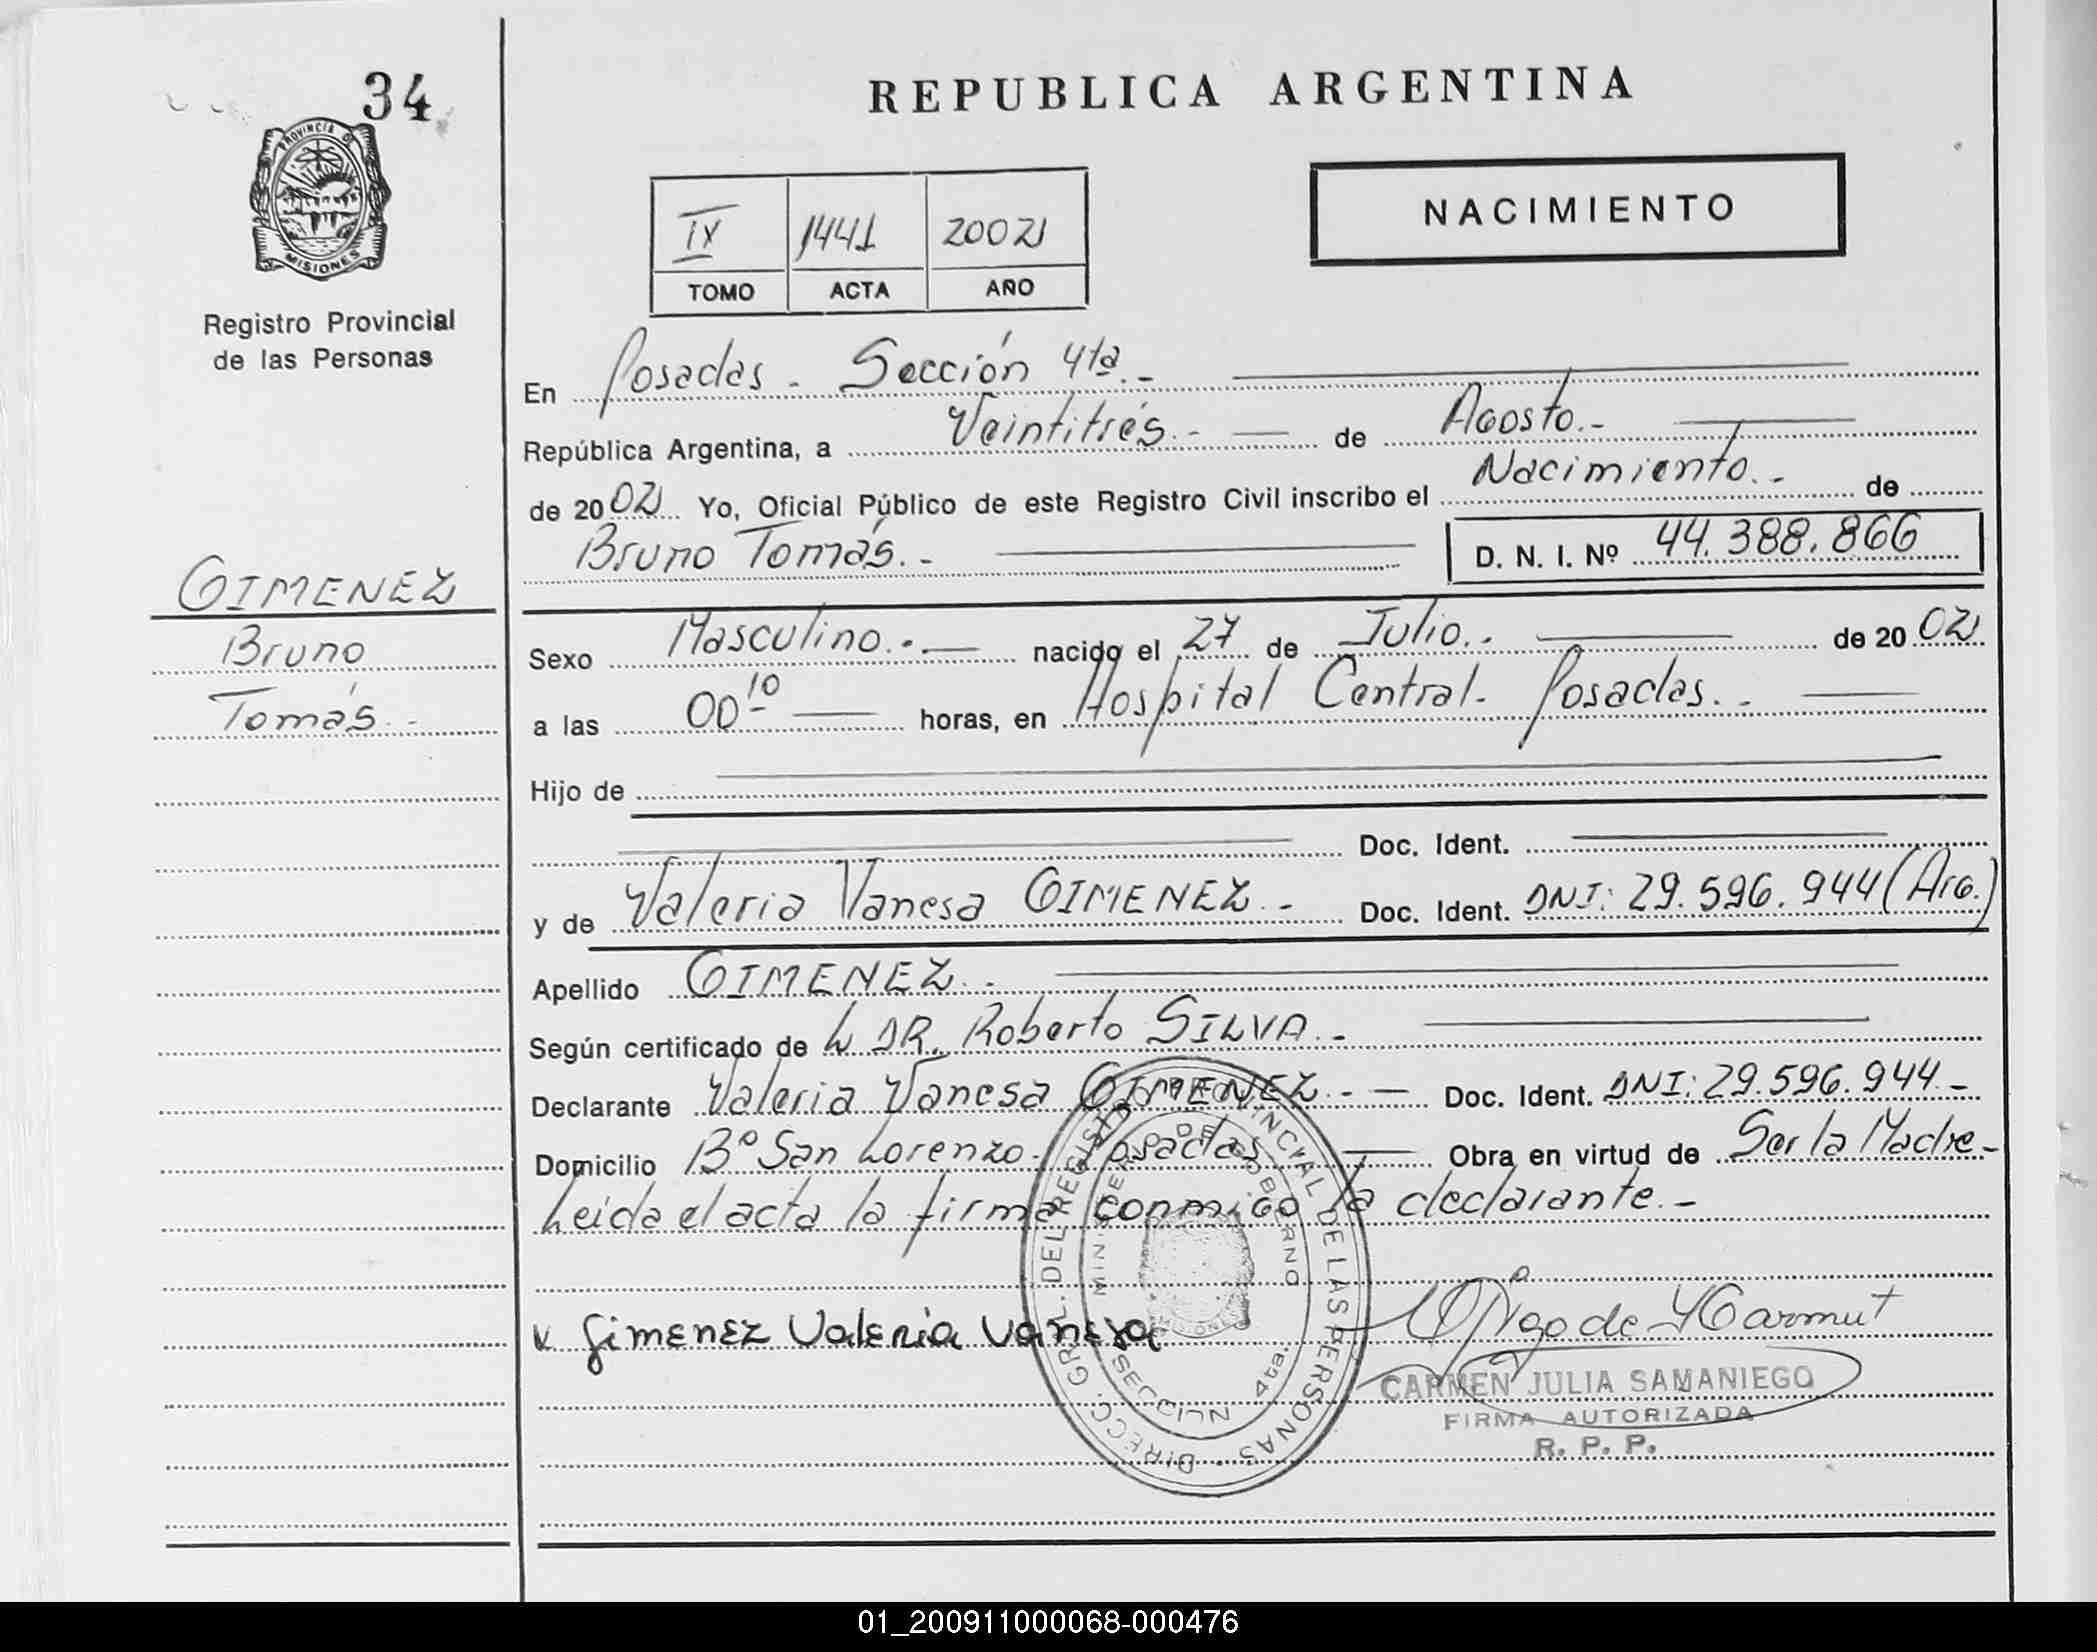 34
PROVINCIA DE
MISIONES
Registro Provincial
de las Personas
REPUBLICA ARGENTINA
NACIMIENTO
IX 1441 2002
TOMO ACTA AÑO
En Posadas. Sección 4ta.-
República Argentina, a Veintitrés.- de Agosto.-
de 2002 Yo, Oficial Público de este Registro Civil inscribo el Nacimiento.- de
Bruno Tomás.- D. N. I. Nº 44.388.866
GIMENEZ
Bruno
Tomás.-
Sexo Masculino.- nacido el 27 de Julio.- de 2002
a las 00 10 horas, en Hospital Central. Posadas.-
Hijo de
Doc. Ident.
y de Valeria Vanesa GIMENEZ.- Doc. Ident. DNI: 29.596.944 (Arg.)
Apellido GIMENEZ.-
Según certificado de L DR. Roberto SILVA.-
Declarante Valeria Vanesa GIMENEZ.- Doc. Ident. DNI: 29.596.944.-
Domicilio Bº San Lorenzo. Posadas Obra en virtud de Ser la Madre-
Leida el acta la firma conmigo la declarante.-
DIRECC. GRL. DEL REGISTRO PROVINCIAL DE LAS PERSONAS
MINISTERIO DE GOBIERNO
MISIONES
SECCION 4ta.
Gimenez Valeria Vanesa
CARMEN JULIA SAMANIEGO
FIRMA AUTORIZADA
R. P. P.
01_200911000068-000476